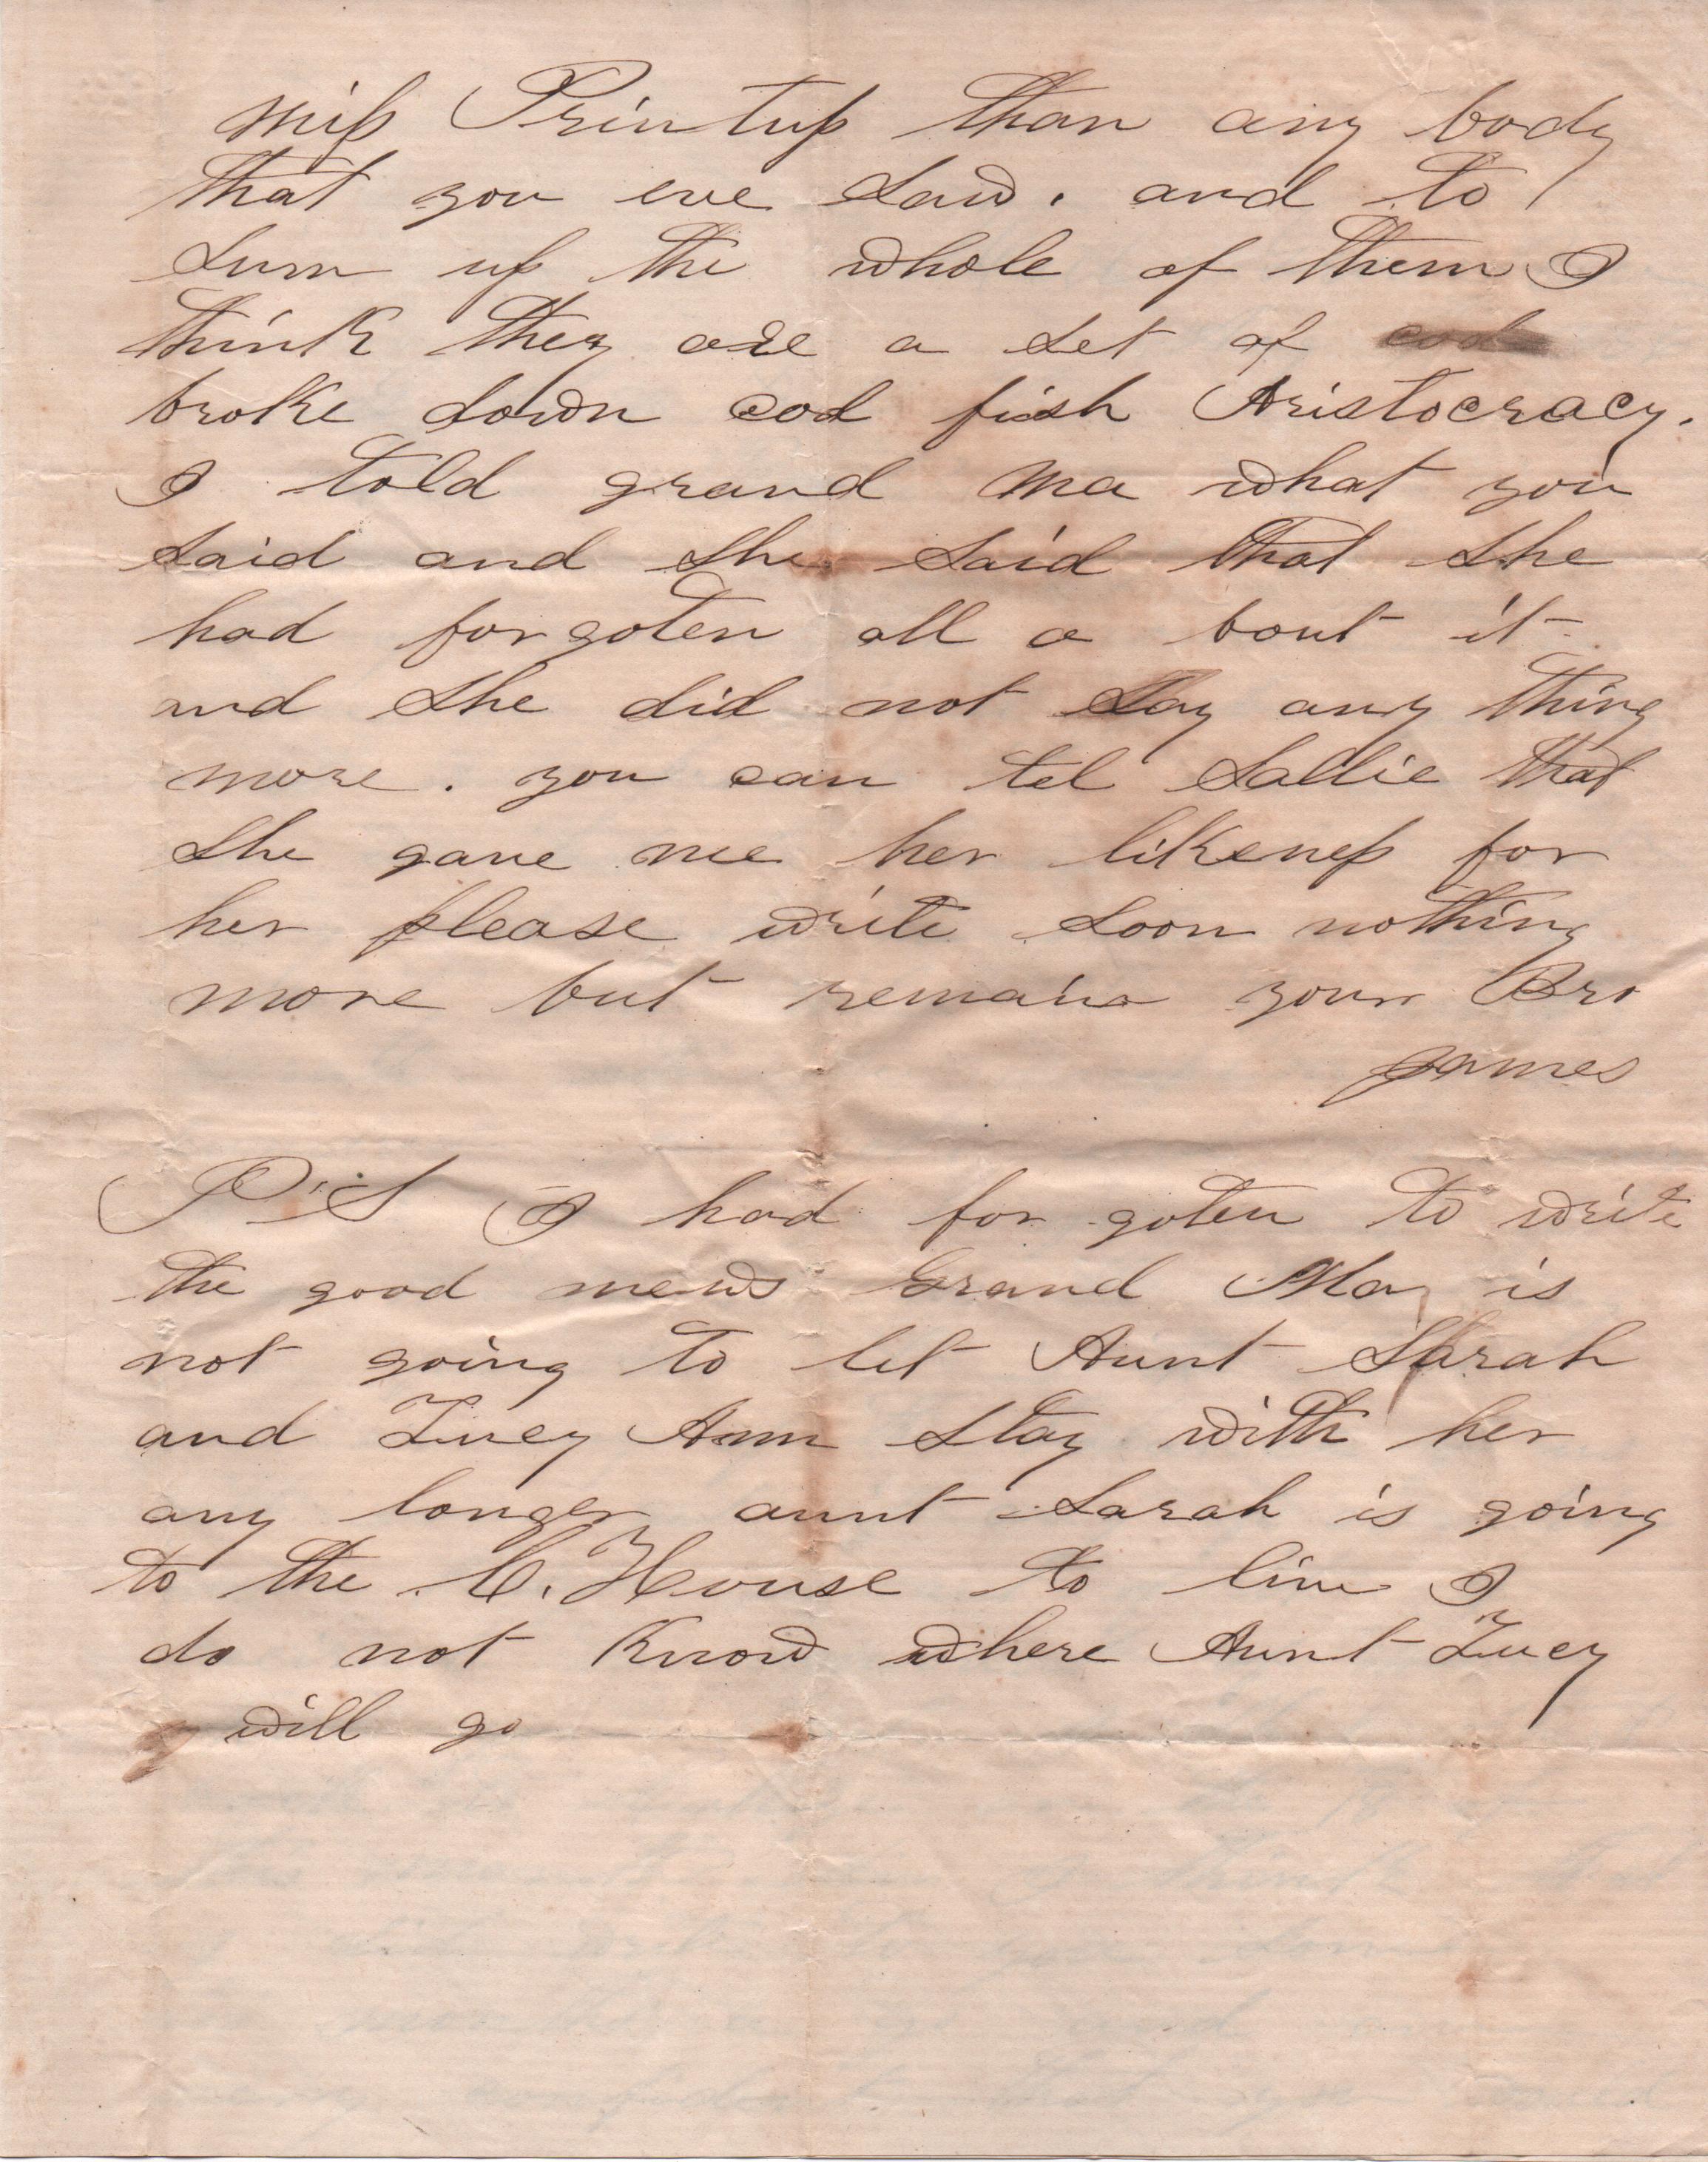 Miss Printup than any body
that you eve saw. and to
sum up the whole of them I
think they are a set of cod
broke down cod fish Aristocracy.
I told grand Ma what you
said and she said that she
had forgoten all a bout it
and she did not say any thing
more. you can tel Sallie that
she gave me her likeness for
her please write soon nothing
more but remains your Bro
James
P.S I had for goten to write
the good news Grand Ma is
not going to let Aunt Sarah
and Lucy Ann stay with her
any longer aunt Sarah is going
to the C. House to live I
do not know where Aunt Lucy
will go